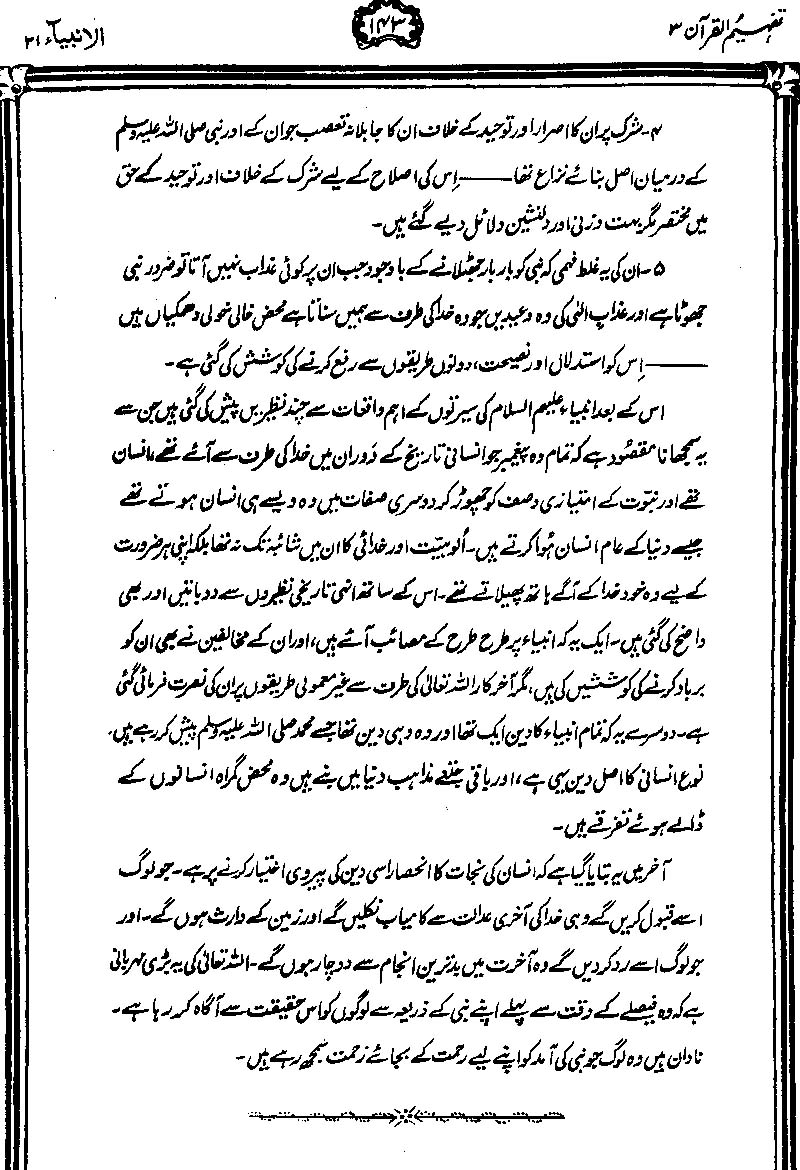 تفہیم القرآن ۳
۱۴۳
الانبیاء ۲۱
۴- شرک پر ان کا اصرار اور توحید کے خلاف ان کا جاہلانہ تعصب جو ان کے اور نبی صلی اللہ علیہ وسلم
کے درمیان اصل بنائے نزاع تھا ——— اِس کی اصلاح کے لیے شرک کے خلاف اور توحید کے حق
میں مختصر مگر بہت وزنی اور دلنشین دلائل دیے گئے ہیں۔
۵- ان کی یہ غلط فہمی کہ نبی کو بار بار جھٹلانے کے باوجود جب ان پر کوئی عذاب نہیں آتا تو ضرور نبی
جھوٹا ہے اور عذاب الٰہی کی وہ وعیدیں جو وہ خدا کی طرف سے ہمیں سناتا ہے محض خالی خولی دھمکیاں ہیں
——— اِس کو استدلال اور نصیحت، دونوں طریقوں سے رفع کرنے کی کوشش کی گئی ہے۔
اس کے بعد انبیاء علیہم السلام کی سیرتوں کے اہم واقعات سے چند نظیریں پیش کی گئی ہیں جن سے
یہ سمجھانا مقصُود ہے کہ تمام وہ پیغمبر جو انسانی تاریخ کے دَوران میں خدا کی طرف سے آئے تھے، انسان
تھے اور نبوت کے امتیازی وصف کو چھوڑ کر دوسری صفات میں وہ ویسے ہی انسان ہوتے تھے
جیسے دنیا کے عام انسان ہُوا کرتے ہیں۔ اُلوہیت اور خدائی کا ان میں شائبہ تک نہ تھا بلکہ اپنی ہر ضرورت
کے لیے وہ خود خدا کے آگے ہاتھ پھیلاتے تھے۔ اس کے ساتھ انہی تاریخی نظیروں سے دو باتیں اور بھی
واضح کی گئی ہیں۔ ایک یہ کہ انبیاء پر طرح طرح کے مصائب آئے ہیں، اور ان کے مخالفین نے بھی ان کو
برباد کرنے کی کوششیں کی ہیں، مگر آخر کار اللہ تعالیٰ کی طرف سے غیر معمولی طریقوں پر ان کی نصرت فرمائی گئی
ہے۔ دوسرے یہ کہ تمام انبیاء کا دین ایک تھا اور وہ وہی دین تھا جسے محمد صلی اللہ علیہ وسلم پیش کر رہے ہیں،
نوع انسانی کا اصل دین یہی ہے، اور باقی جتنے مذاہب دنیا میں بنے ہیں وہ محض گمراہ انسانوں کے
ڈالے ہوئے تفرقے ہیں۔
آخر میں یہ بتایا گیا ہے کہ انسان کی نجات کا انحصار اسی دین کی پیروی اختیار کرنے پر ہے۔ جو لوگ
اسے قبول کریں گے وہی خدا کی آخری عدالت سے کامیاب نکلیں گے اور زمین کے وارث ہوں گے۔ اور
جو لوگ اسے رد کر دیں گے وہ آخرت میں بدترین انجام سے دوچار ہوں گے۔ اللہ تعالیٰ کی یہ بڑی مہربانی
ہے کہ وہ فیصلے کے وقت سے پہلے اپنے نبی کے ذریعہ سے لوگوں کو اس حقیقت سے آگاہ کر رہا ہے۔
نادان ہیں وہ لوگ جو نبی کی آمد کو اپنے لیے رحمت کے بجائے زحمت سمجھ رہے ہیں۔